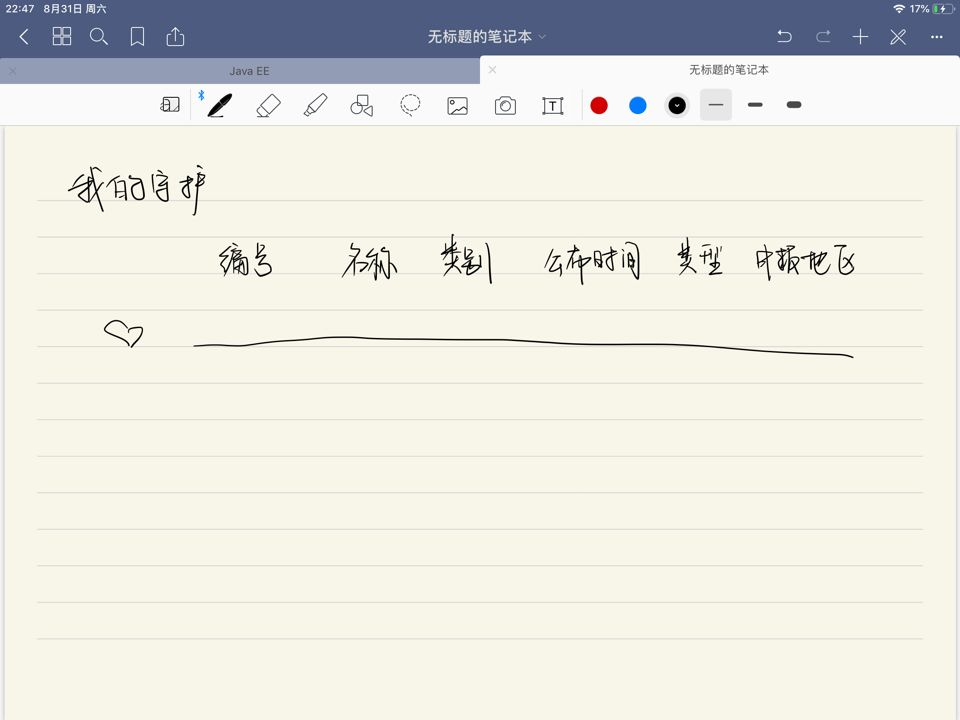 22:47 8月31日 周六
17%
无标题的笔记本
Java EE
无标题的笔记本
T
我的守护
编号 名称 类别 公布时间 类型 申报地区